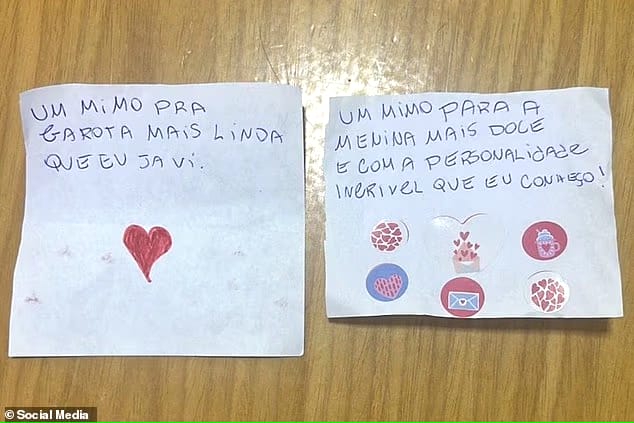 UM MIMO PRA
GAROTA MAIS LINDA
QUE EU JA VI.
UM MIMO PARA A
MENINA MAIS DOCE
E COM A PERSONALIDADE
INCRIVEL QUE EU CONHEÇO!
© Social Media